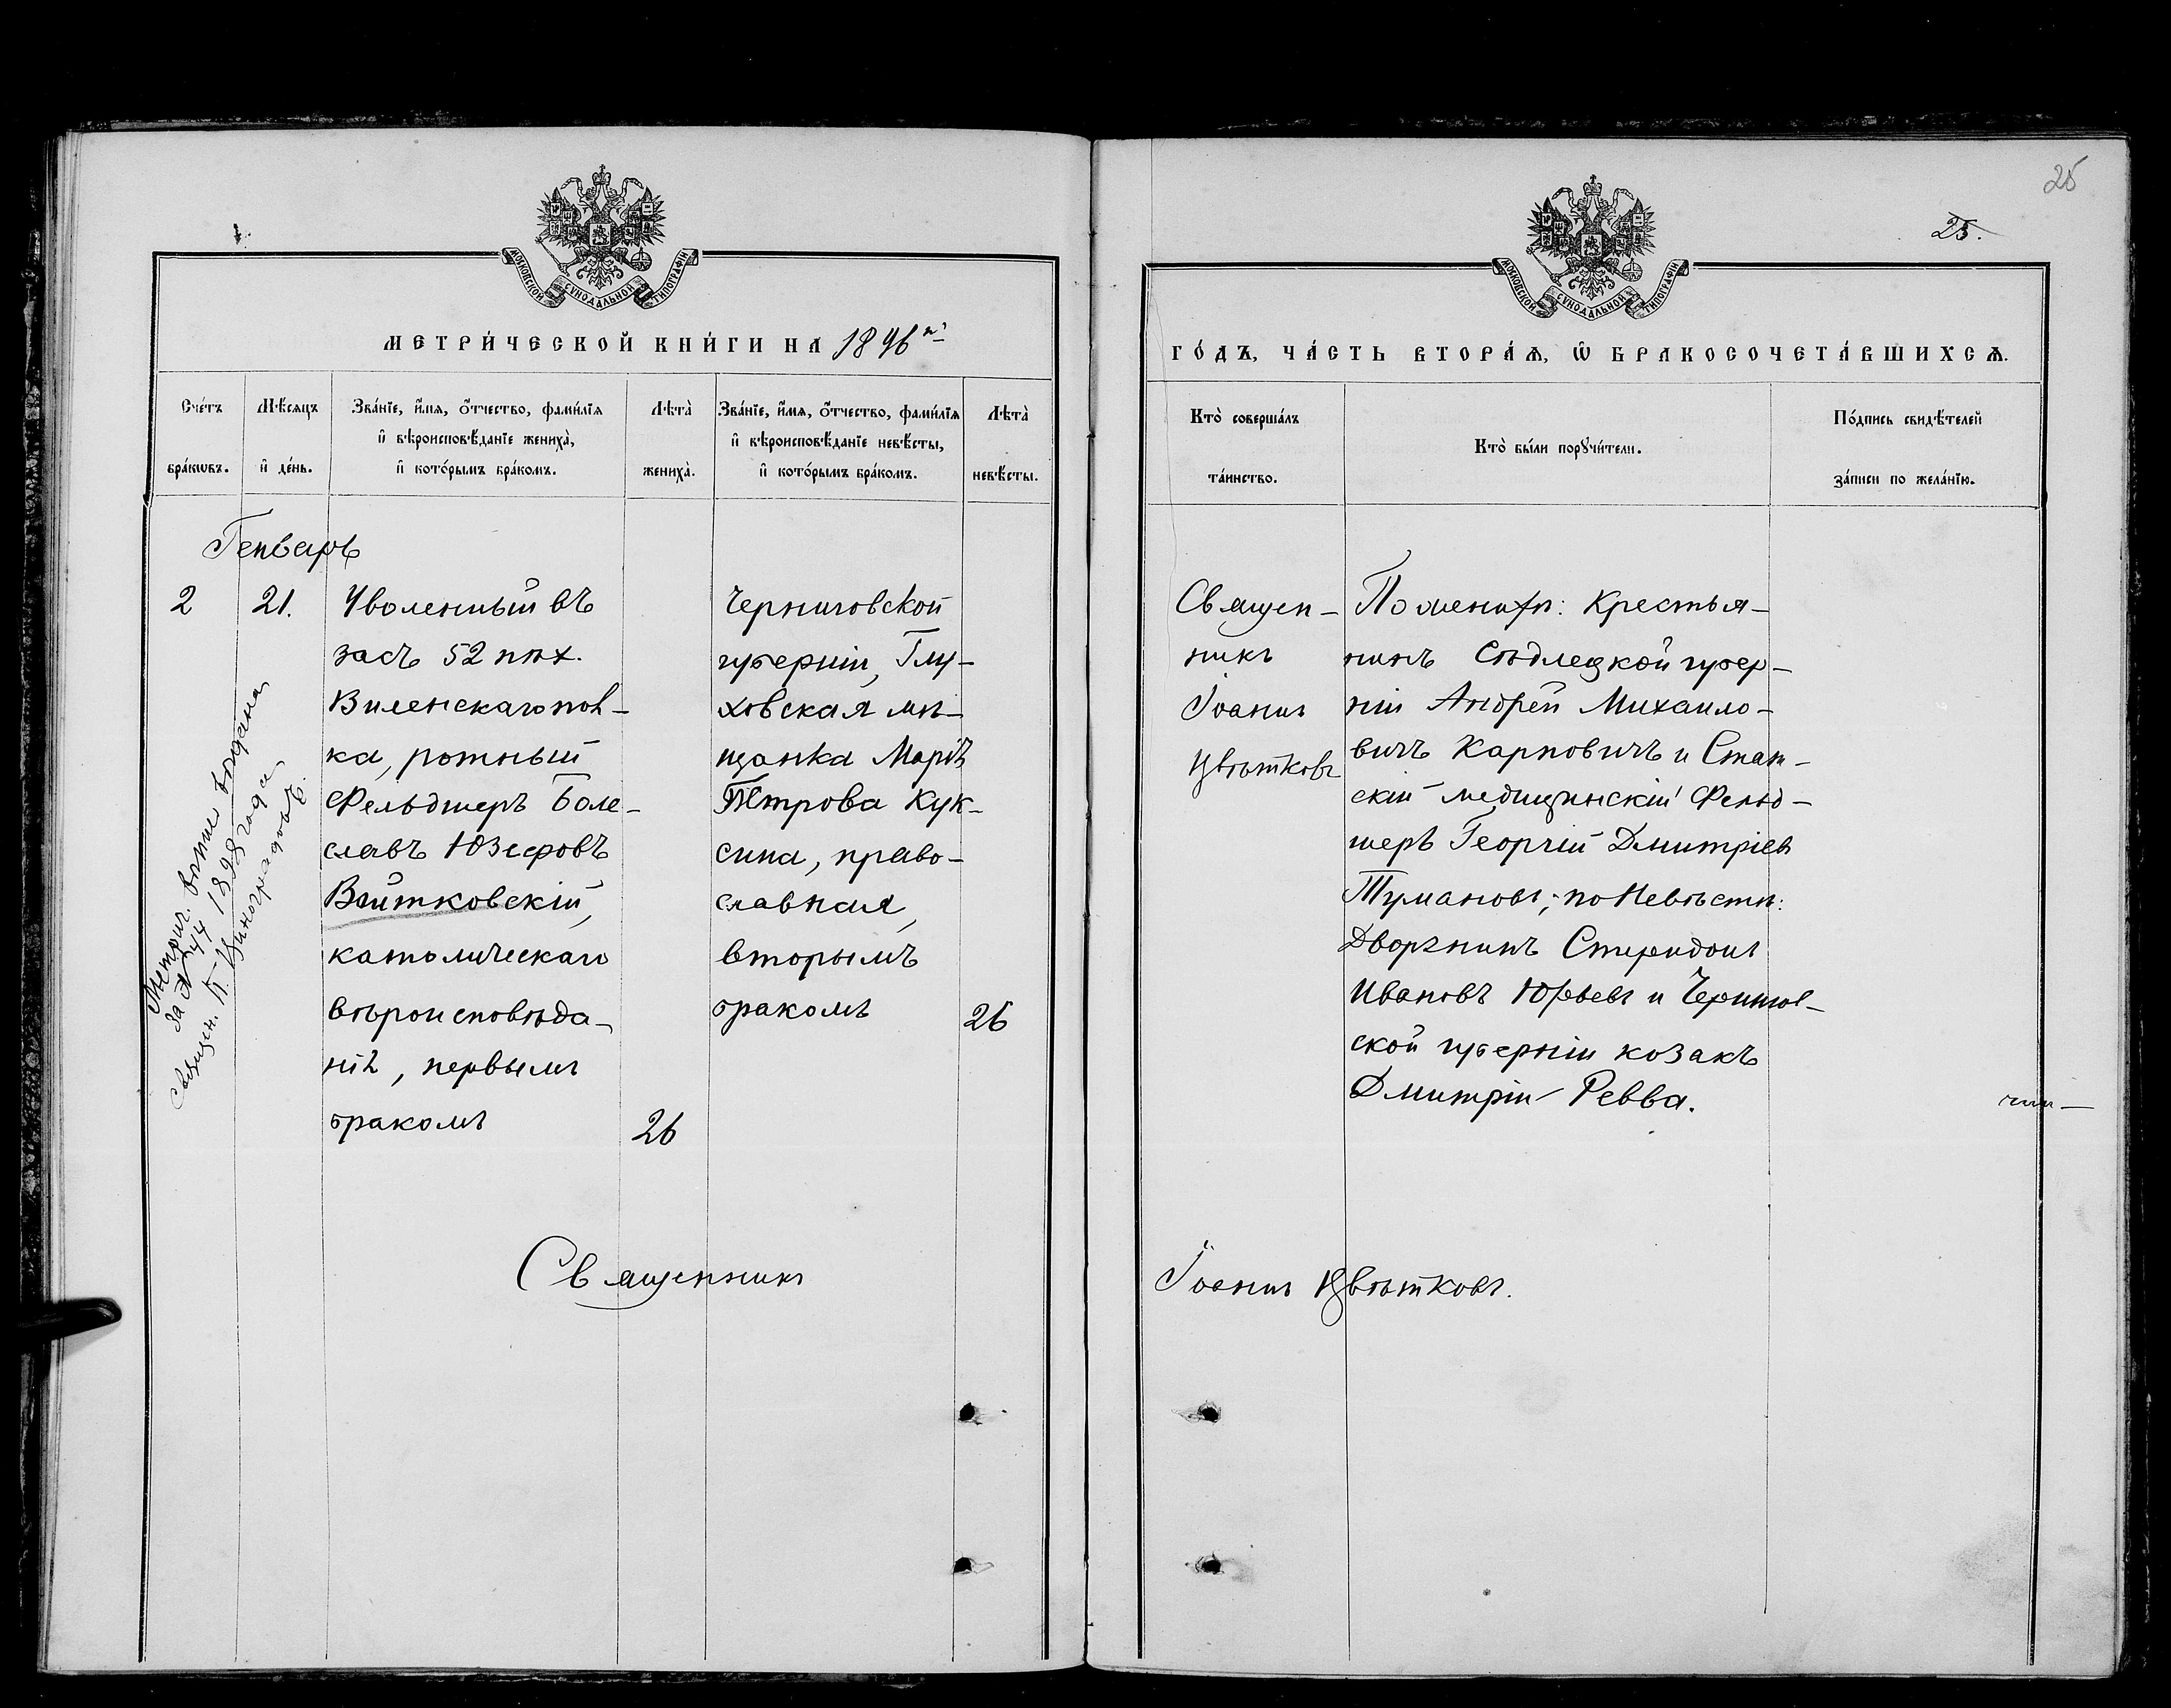 25
25.
МОСКОВСКОЙ СУНОДАЛЬНОЙ ТИПОГРАФІИ
МЕТРИ́ЧЕСКОЙ КНИ́ГИ НА 1896й
Сче́тъ бра́кωвъ.
Мѣ́сяцъ и҆ де́нь.
Зва́нїе, и҆́мѧ, ѻ҆́тчество, фами́лїѧ
и҆ вѣроисповѣ́данїе жениха̀,
и҆ кото́рымъ бра́комъ.
Лѣта̀
жениха̀.
Зва́нїе, и҆́мѧ, ѻ҆́тчество, фами́лїѧ
и҆ вѣроисповѣ́данїе невѣ́сты,
и҆ кото́рымъ бра́комъ.
Лѣта̀
невѣ́сты.
Генварь
2
21.
Уволенный въ
засъ 52 пѣх.
Виленскаго пол-
ка, ротный
Фельдшеръ Боле-
славъ Юзефовъ
Войтковскій,
католическаго
вѣроисповѣда-
нія, первымъ
бракомъ
26
Черниговской
губерніи, Глу-
ховская мѣ-
щанка Марія
Петрова Кук-
сина, право-
славная,
вторымъ
бракомъ
26
Метрич. выпись выдана
за № 44 1898 года
Священ. К. Виноградовъ.
Священникъ
МОСКОВСКОЙ СУНОДАЛЬНОЙ ТИПОГРАФІИ
ГО́ДЪ, ЧА́СТЬ ВТОРА́Ѧ, Ѡ҆ БРАКОСОЧЕТА́ВШИХСѦ.
Кто̀ соверша́лъ
та́инство.
Кто̀ бы́ли порꙋчи́тели.
По́дпись свидѣ́телей
за́писи по жела́нїю.
Священ-
никъ
Іоаннъ
Цвѣтковъ
По жениху: Крестья-
нинъ Сѣдлецкой губер-
ніи Андрей Михаило-
вичъ Карповичъ и Стат-
скій медицинскій Фельд-
шеръ Георгій Дмитріевъ
Тумановъ; по Невѣстѣ:
Дворянинъ Спиридонъ
Ивановъ Юрьевъ и Чернигов-
ской губерніи козакъ
Дмитрій Ревва.
Іоаннъ Цвѣтковъ.